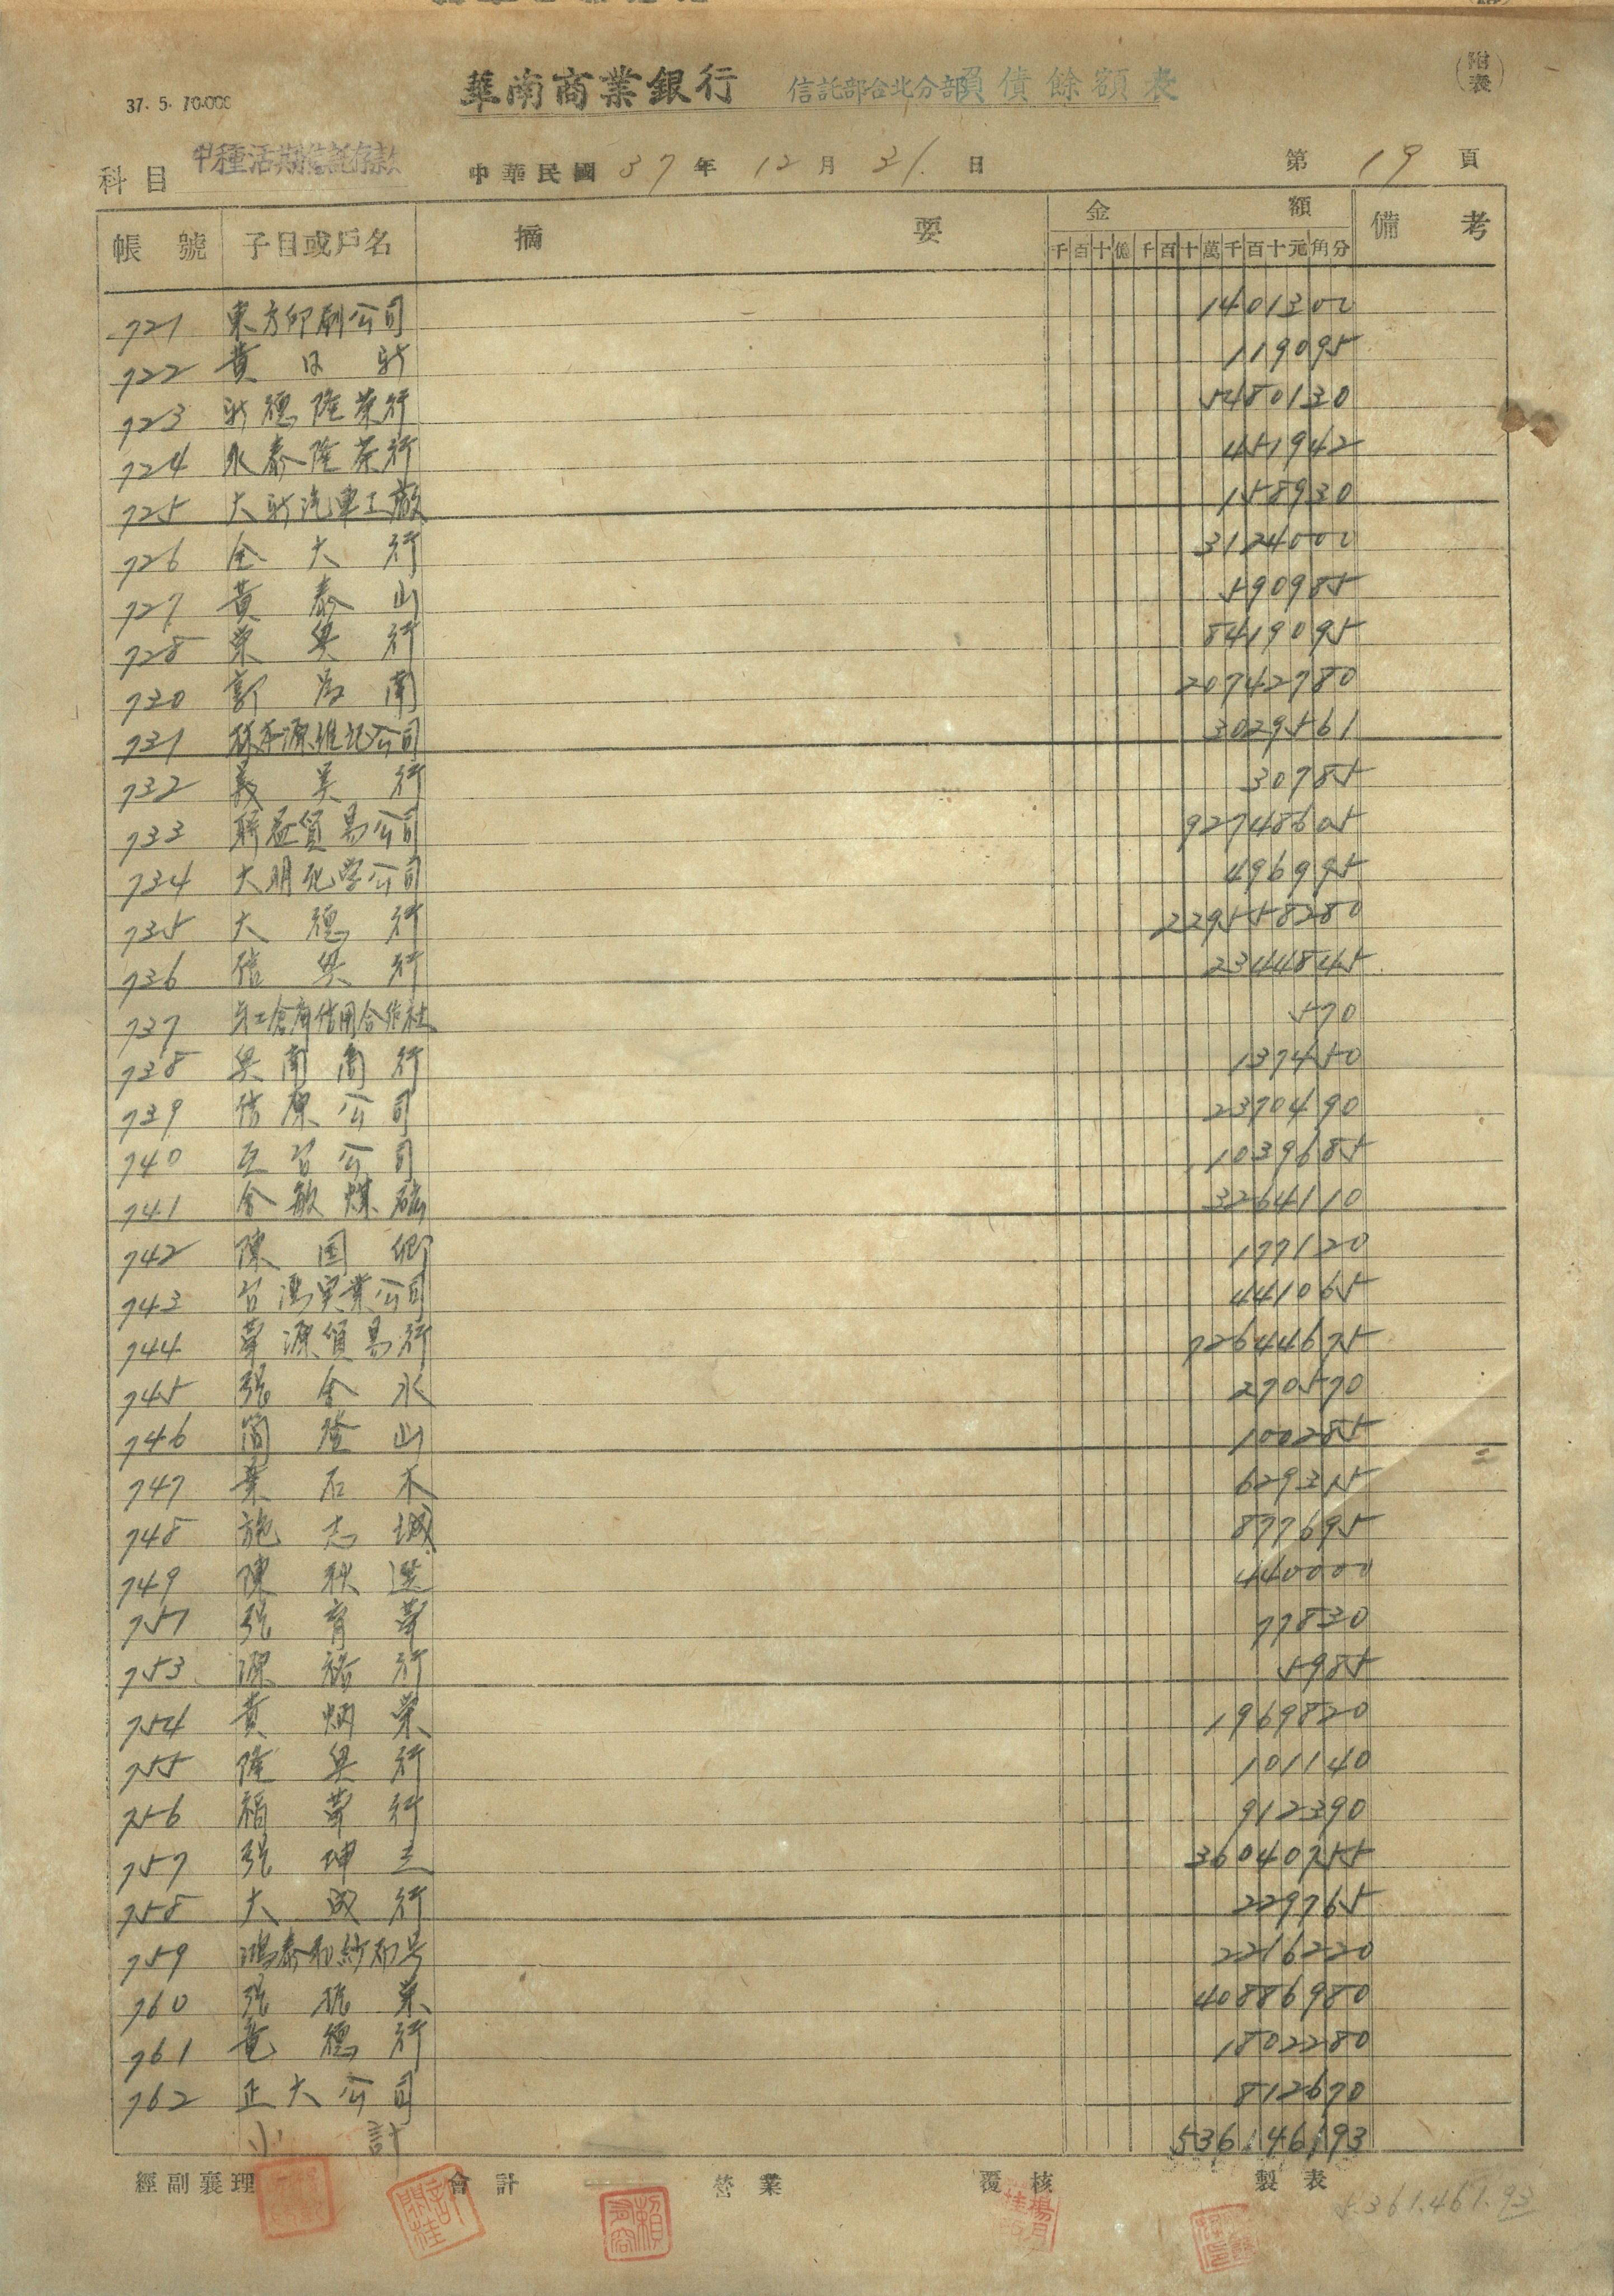 37. 5. 10.000
華南商業銀行 信託部台北分部負債餘額表 (附表)
科目 甲種活期信託存款 中華民國 37 年 12 月 31 日 第 19 頁
帳號 子目或戶名 摘要 金額 備考
千百十億千百十萬千百十元角分
721 東方印刷公司 1401300
722 黃日新 119095
723 新德隆茶行 5480130
724 永泰隆茶行 451942
725 大新汽車工廠 158930
726 金大行 3124000
727 黃泰山 590985
728 榮興行 8419095
730 許為南 20742780
731 林本源維記公司 3029561
732 義美行 30785
733 聯益貿易公司 92748605
734 大明化学公司 496995
735 大德行 229558280
736 信興行 2344845
737 員工倉庫信用合作社 570
738 興南商行 137450
739 信原公司 2370490
740 互台公司 1039685
741 金敏煤礦 3264110
742 陳国卿 177120
743 台灣実業公司 441065
744 華源貿易行 72644675
745 張金水 270570
746 簡登山 100285
747 葉石木 629315
748 施志城 877695
749 陳秋選 440000
751 張育華 77830
753 源裕行 5985
754 黃炳榮 1969820
755 隆興行 101140
756 福華行 912390
757 張坤玉 36040755
758 大成行 229765
759 鴻泰和紗布号 2216220
760 張振榮 40886980
761 竜德行 1802280
762 正大公司 812670
小計 536146193
經副襄理 會計 營業 覆核 製表
5.361.461.93